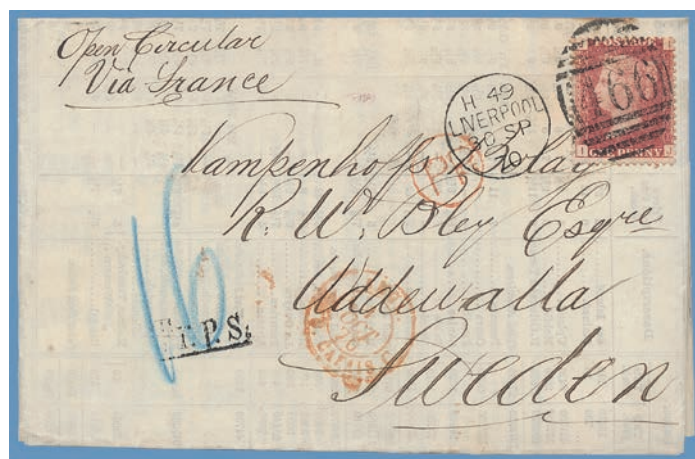 Open Circular
Via France
H 49
LIVERPOOL
30 SP
70
66
PENNY
PD
Kampenhoffs Bolag
R. W. Bley Esqre
Uddewalla
Sweden
16
T.P.S.
CALAIS